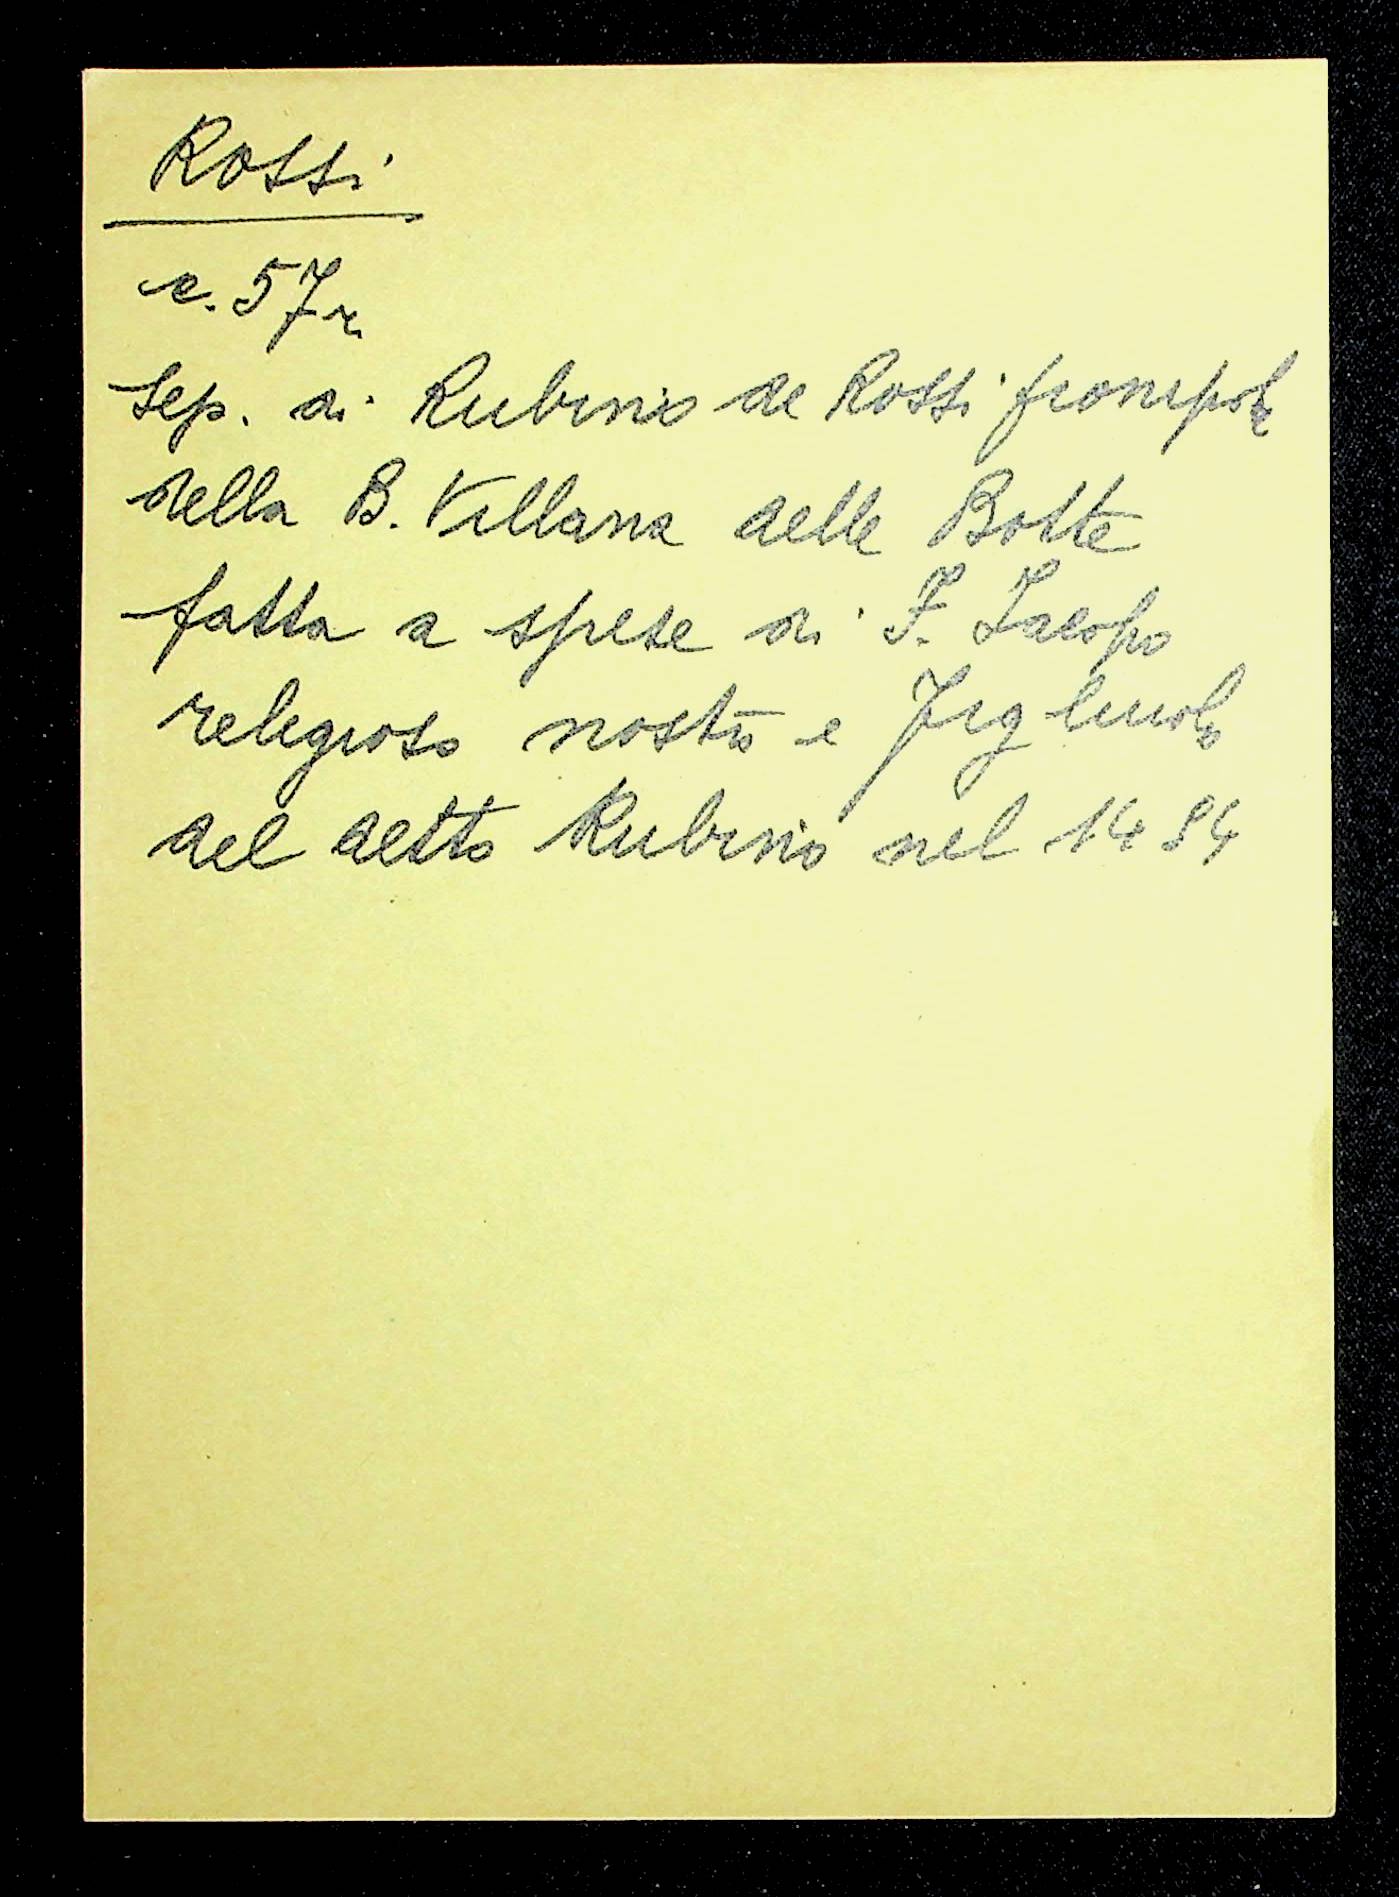 Rossi
c. 57r
Sep. di Rubino de Rossi pronipote
della B. Villana delle Botte
fatta a spese di F. Iacopo
religioso nostro e Figliuolo
del detto Rubino nel 1484